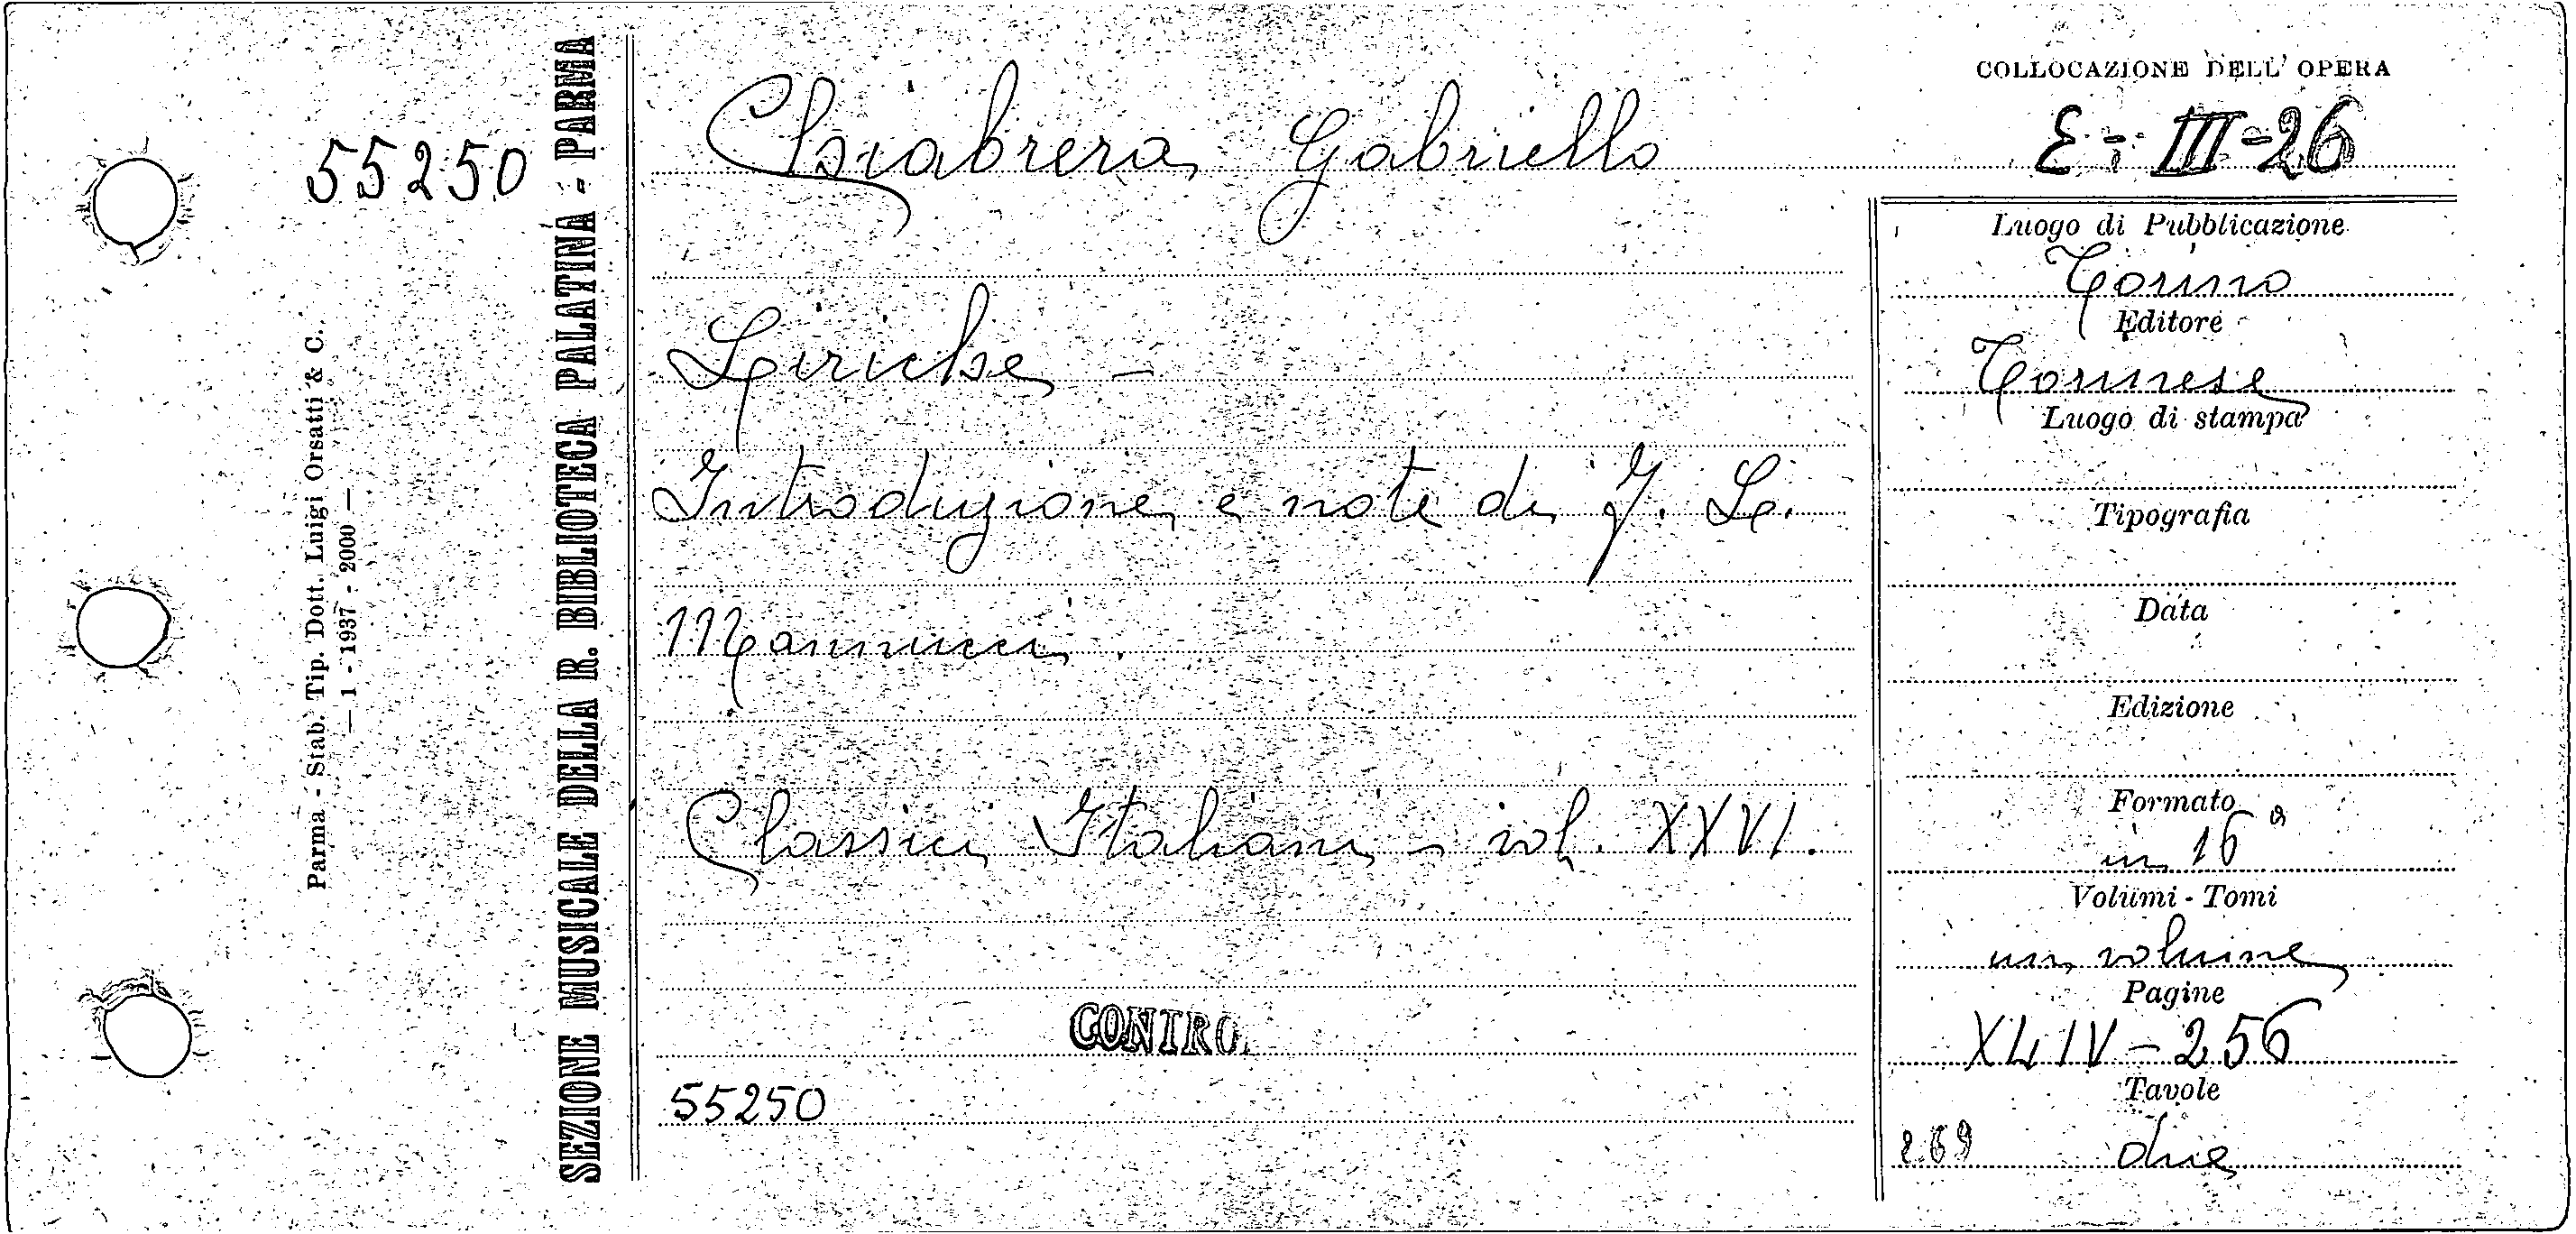 55250
Parma - Stab. Tip. Dott. Luigi Orsatti & C.
— 1 - 1937 - 2000 —
SEZIONE MUSICALE DELLA R. BIBLIOTECA PALATINA - PARMA
Chiabrera Gabriello
Liriche -
Introduzione e note di F. L.
Mannucci.
Classici Italiani - vol. XXVI.
CONTRO
55250
COLLOCAZIONE DELL' OPERA
E - III - 26
Luogo di Pubblicazione
Torino
Editore
Torinese
Luogo di stampa
Tipografia
Data
Edizione
Formato
in 16°
Volumi - Tomi
un volume
Pagine
XLIV - 256
Tavole
269 due